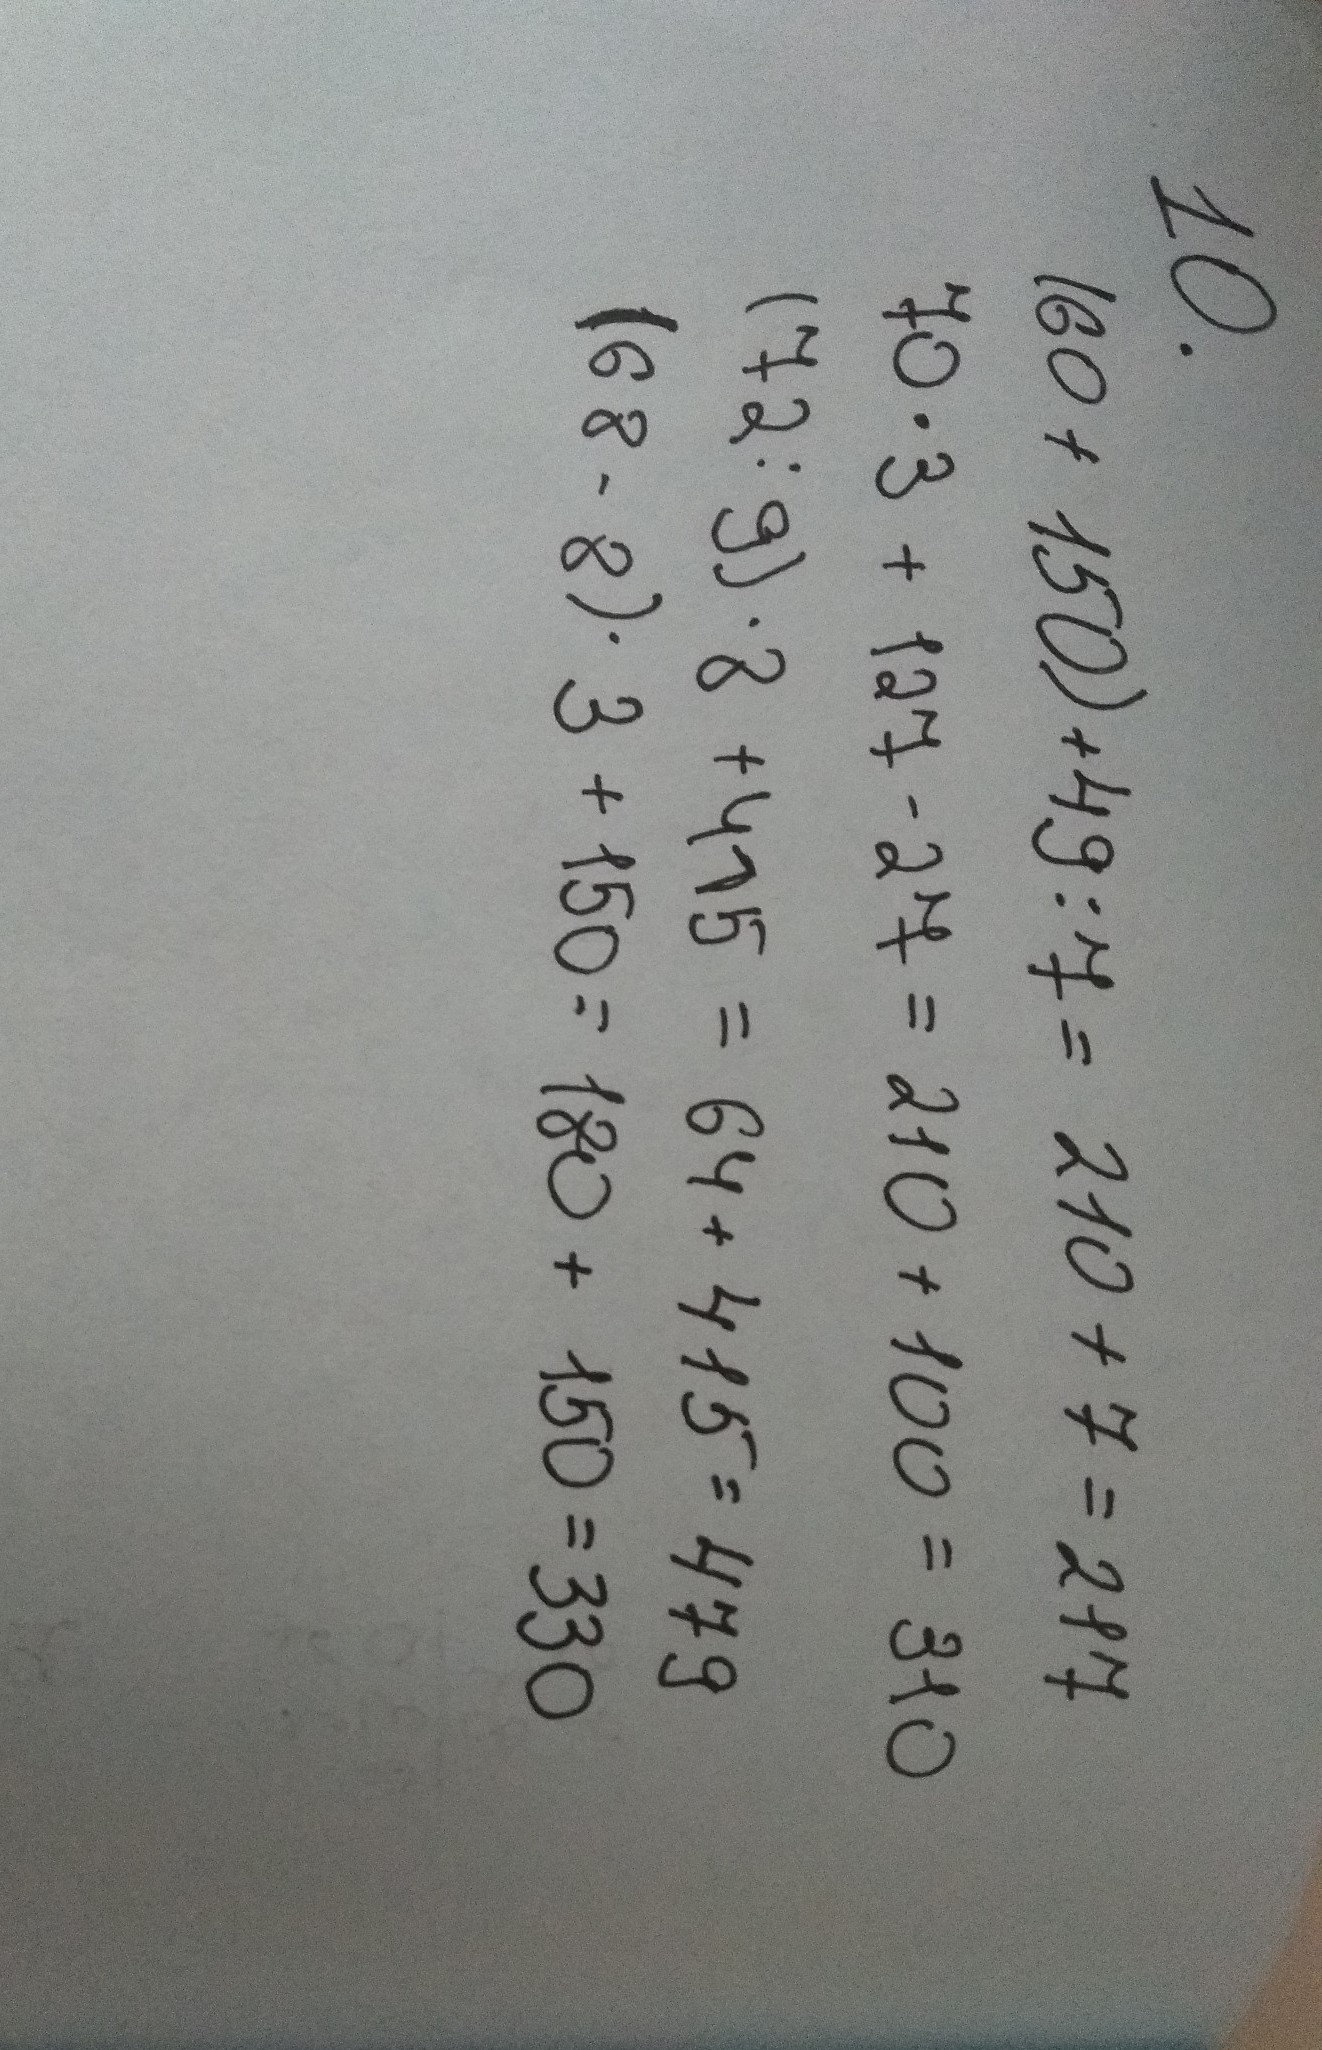 10.
(60 + 150) + 49 : 7 = 210 + 7 = 217
70 · 3 + 127 - 27 = 210 + 100 = 310
(72 : 9) · 8 + 415 = 64 + 415 = 479
(68 - 8) · 3 + 150 = 180 + 150 = 330